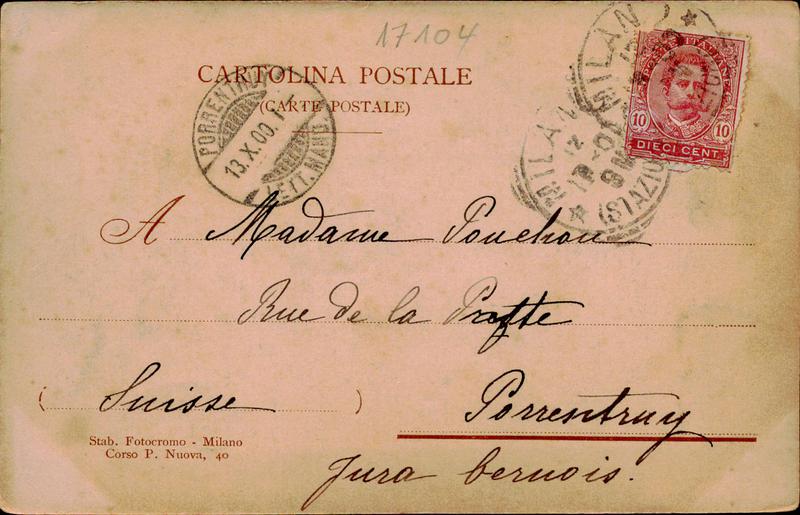 17104
CARTOLINA POSTALE
(CARTE POSTALE)
PORRENTRUY
13.X.00.
LETT. MAND.
MILANO
12
10-00
(STAZIO
POSTE ITALIANE
10 10
DIECI CENT.
A Madame Pouchon
Rue de la
( Suisse ) Porrentruy
Stab. Fotocromo - Milano
Corso P. Nuova, 40
Jura bernois.